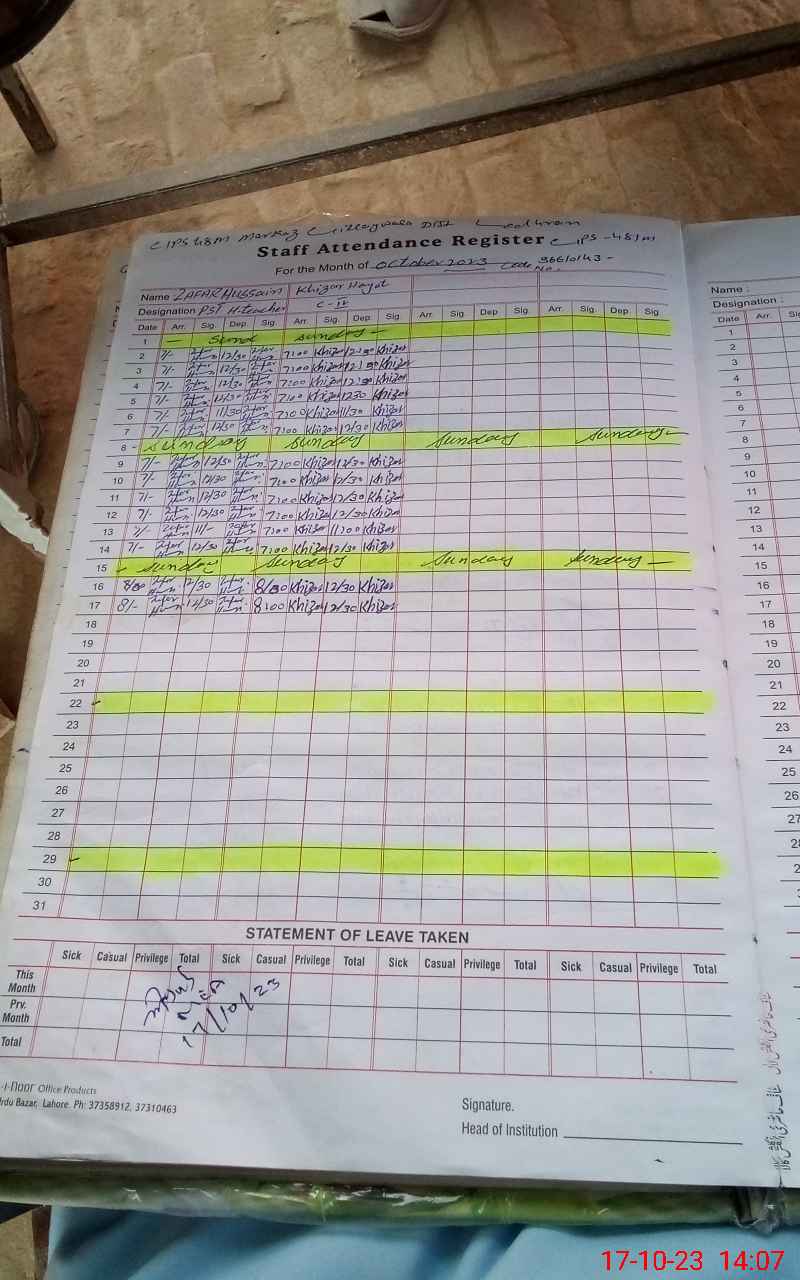 GPS 48M Markaz Dist Lodhran
Staff Attendance Register GPS - 48/M
For the Month of October 2023 Code No. 36610143 -
Name ZAFAR HUSSAIN Khizar Hayat
Designation PST H.teacher C-IV
Date Arr. Sig. Dep. Sig. Arr. Sig. Dep. Sig. Arr. Sig. Dep. Sig. Arr. Sig. Dep. Sig.
1 — Sund Sunday —
2 7/- 12/30 7:00 Khizar 12:30 Khizar
3 7/- 12/30 7:00 Khizar 12:30 Khizar
4 7/- 12/30 7:00 Khizar 12:30 Khizar
5 7/- 12/30 7:00 Khizar 12:30 Khizar
6 7/- 11/30 7:00 Khizar 11/30 Khizar
7 7/- 12/30 7:00 Khizar 12/30 Khizar
8 - Sunday Sunday Sunday Sunday —
9 7/- 12/30 7:00 Khizar 12/30 Khizar
10 7/- 12/30 7:00 Khizar 12/30 Khizar
11 7/- 12/30 7:00 Khizar 12/30 Khizar
12 7/- 12/30 7:00 Khizar 12/30 Khizar
13 7/- 11/- 7:00 Khizar 11:00 Khizar
14 7/- 12/30 7:00 Khizar 12/30 Khizar
15 - Sunday Sunday Sunday Sunday —
16 8/00 12/30 8/00 Khizar 12/30 Khizar
17 8/- 12/30 8:00 Khizar 12/30 Khizar
18
19
20
21
22
23
24
25
26
27
28
29
30
31
STATEMENT OF LEAVE TAKEN
Sick Casual Privilege Total Sick Casual Privilege Total Sick Casual Privilege Total Sick Casual Privilege Total
This Month
Prv. Month
Total
MEA
17/10/23
-i-Noor Office Products
Urdu Bazar, Lahore. Ph: 37358912, 37310463
Signature.
Head of Institution
Name :
Designation :
Date Arr. Sig.
1
2
3
4
5
6
7
8
9
10
11
12
13
14
15
16
17
18
19
20
21
22
23
24
25
26
27
17-10-23 14:07